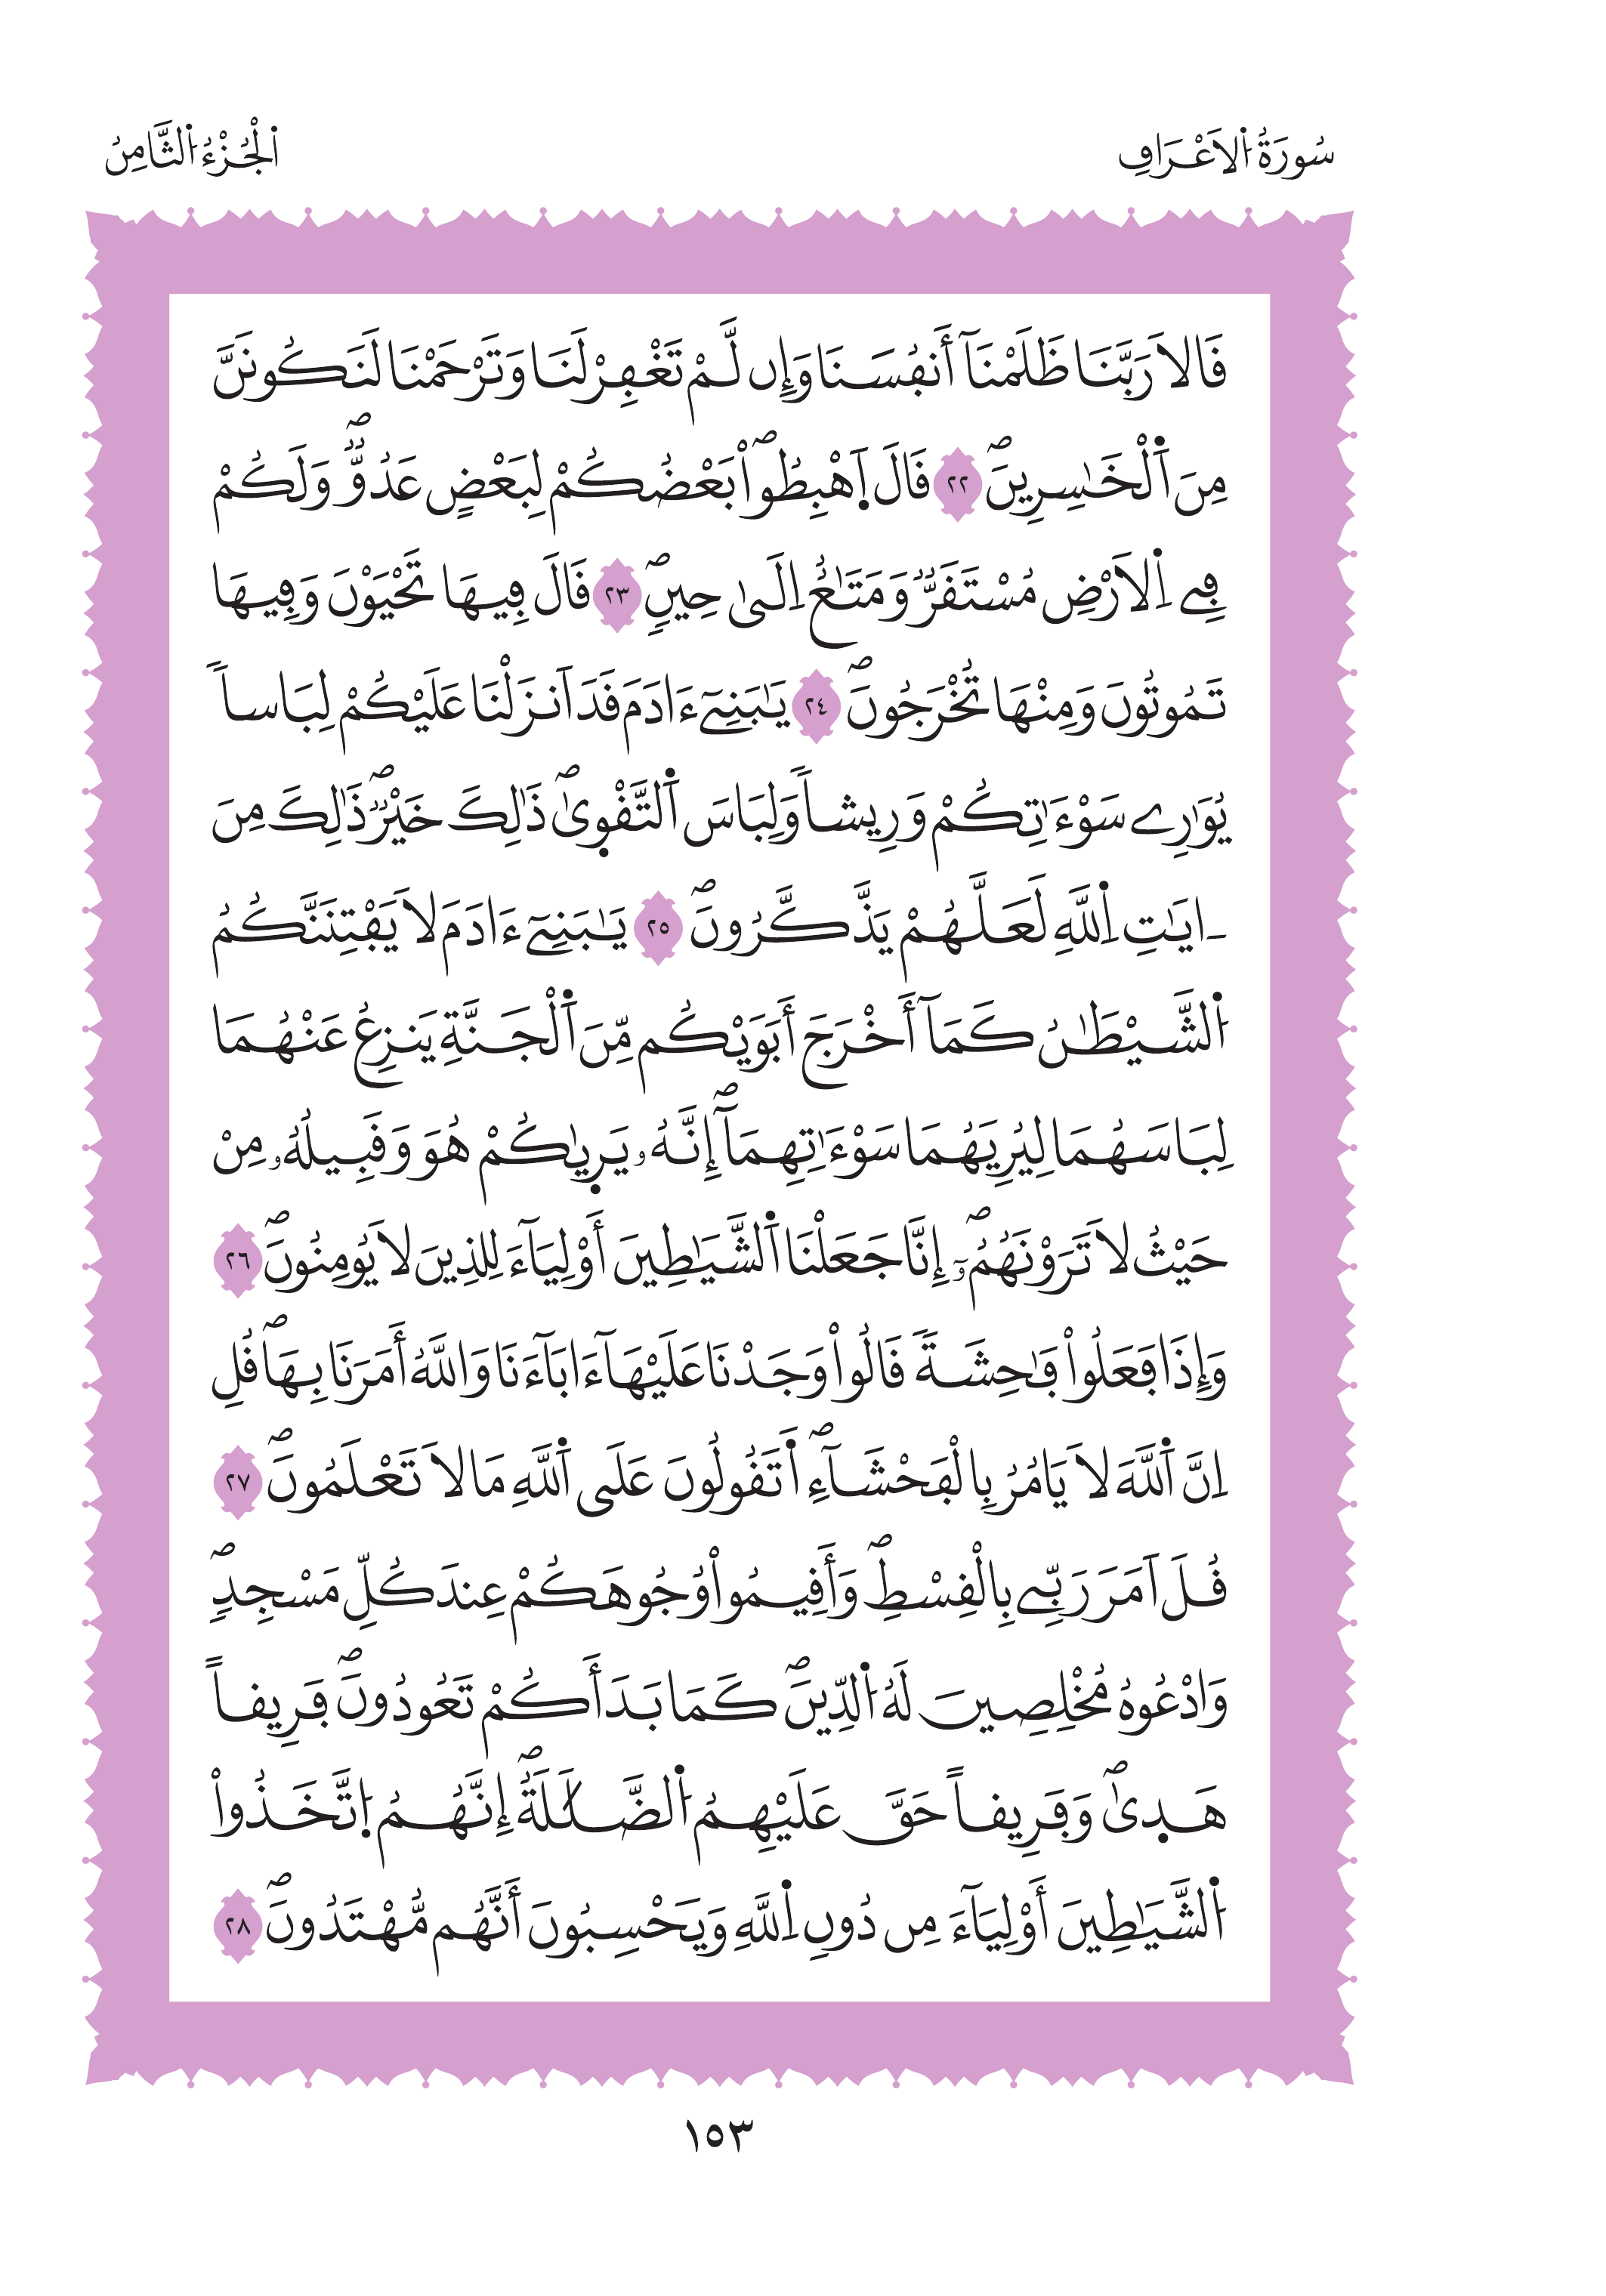 سُورَةُ اُ۬لَاعْرَافِ
اَ۬لْجُزْءُ اُ۬لثَّامِنُ
قَالَا رَبَّنَا ظَلَمْنَآ أَنفُسَنَا وَإِن لَّمْ تَغْفِرْ لَنَا وَتَرْحَمْنَا لَنَكُونَنَّ
مِنَ اَ۬لْخَٰسِرِينَۖ ٢٢ قَالَ اَ۪هْبِطُواْۖ بَعْضُكُمْ لِبَعْضٍ عَدُوّٞۖ وَلَكُمْ
فِے اِ۬لَارْضِ مُسْتَقَرّٞ وَمَتَٰعٌ اِلَىٰ حِينٖۖ ٢٣ قَالَ فِيهَا تَحْيَوْنَ وَفِيهَا
تَمُوتُونَ وَمِنْهَا تُخْرَجُونَۖ ٢٤ يَٰبَنِےٓ ءَادَمَ قَدَ اَنزَلْنَا عَلَيْكُمْ لِبَاساٗ
يُوَٰرِے سَوْءَٰتِكُمْ وَرِيشاٗ وَلِبَاسَ اَ۬لتَّقْوِىٰۖ ذَٰلِكَ خَيْرٞۖ ذَٰلِكَ مِنَ
ـ۔ايَٰتِ اِ۬للَّهِ لَعَلَّهُمْ يَذَّكَّرُونَۖ ٢٥ يَٰبَنِےٓ ءَادَمَ لَا يَفْتِنَنَّكُمُ
اُ۬لشَّيْطَٰنُ كَمَآ أَخْرَجَ أَبَوَيْكُم مِّنَ اَ۬لْجَنَّةِ يَنزِعُ عَنْهُمَا
لِبَاسَهُمَا لِيُرِيَهُمَا سَوْءَٰتِهِمَآۖ إِنَّهُۥ يَر۪يٰكُمْ هُوَ وَقَبِيلُهُۥ مِنْ
حَيْثُ لَا تَرَوْنَهُمُۥٓۖ إِنَّا جَعَلْنَا اَ۬لشَّيَٰطِينَ أَوْلِيَآءَ لِلذِينَ لَا يُومِنُونَۖ ٢٦
وَإِذَا فَعَلُواْ فَٰحِشَةٗ قَالُواْ وَجَدْنَا عَلَيْهَآ ءَابَآءَنَا وَاللَّهُ أَمَرَنَا بِهَاۖ قُلِ
اِنَّ اَ۬للَّهَ لَا يَامُرُ بِالْفَحْشَآءِۖ اَ۬تَقُولُونَ عَلَى اَ۬للَّهِ مَا لَا تَعْلَمُونَۖ ٢٧
قُلَ اَمَرَ رَبِّے بِالْقِسْطِۖ وَأَقِيمُواْ وُجُوهَكُمْ عِندَ كُلِّ مَسْجِدٖۖ
وَادْعُوهُ مُخْلِصِينَ لَهُ اُ۬لدِّينَۖ كَمَا بَدَأَكُمْ تَعُودُونَۖ فَرِيقاً
هَد۪ىٰۖ وَفَرِيقاً حَقَّ عَلَيْهِمُ اُ۬لضَّلَٰلَةُۖ إِنَّهُمُ اُ۪تَّخَذُواْ
اُ۬لشَّيَٰطِينَ أَوْلِيَآءَ مِن دُونِ اِ۬للَّهِ وَيَحْسِبُونَ أَنَّهُم مُّهْتَدُونَۖ ٢٨
١٥٣